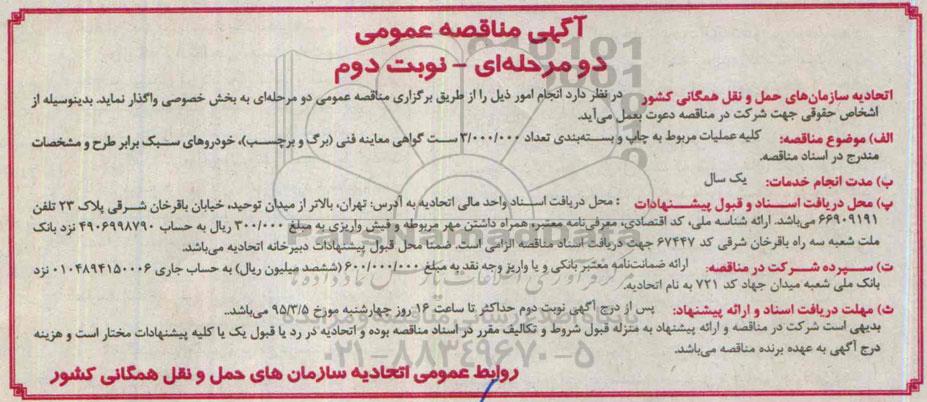 آگهی مناقصه عمومی
دو مرحله‌ای - نوبت دوم
اتحادیه سازمان‌های حمل و نقل همگانی کشور در نظر دارد انجام امور ذیل را از طریق برگزاری مناقصه عمومی دو مرحله‌ای به بخش خصوصی واگذار نماید. بدینوسیله از
اشخاص حقوقی جهت شرکت در مناقصه دعوت بعمل می‌آید.
الف) موضوع مناقصه: کلیه عملیات مربوط به چاپ و بسته‌بندی تعداد ۳/۰۰۰/۰۰۰ ست گواهی معاینه فنی (برگ و برچسب)، خودروهای سبک برابر طرح و مشخصات
مندرج در اسناد مناقصه.
ب) مدت انجام خدمات: یک سال
پ) محل دریافت اسناد و قبول پیشنهادات : محل دریافت اسناد واحد مالی اتحادیه به آدرس: تهران، بالاتر از میدان توحید، خیابان باقرخان شرقی پلاک ۲۳ تلفن
۶۶۹۰۹۱۹۱ می‌باشد. ارائه شناسه ملی، کد اقتصادی، معرفی‌نامه معتبر، همراه داشتن مهر مربوطه و فیش واریزی به مبلغ ۳۰۰/۰۰۰ ریال به حساب ۴۹۰۶۹۹۸۷۹۰ نزد بانک
ملت شعبه سه راه باقرخان شرقی کد ۶۷۴۴۷ جهت دریافت اسناد مناقصه الزامی است. ضمنا محل قبول پیشنهادات دبیرخانه اتحادیه می‌باشد.
ت) سپرده شرکت در مناقصه: ارائه ضمانت‌نامه معتبر بانکی و یا واریز وجه نقد به مبلغ ۶۰۰/۰۰۰/۰۰۰ (ششصد میلیون ریال) به حساب جاری ۰۱۰۴۸۹۴۱۵۰۰۰۶ نزد
بانک ملی شعبه میدان جهاد کد ۷۲۱ به نام اتحادیه.
ث) مهلت دریافت اسناد و ارائه پیشنهاد: پس از درج آگهی نوبت دوم حداکثر تا ساعت ۱۶ روز چهارشنبه مورخ ۹۵/۳/۵ می‌باشد..
بدیهی است شرکت در مناقصه و ارائه پیشنهاد به منزله قبول شروط و تکالیف مقرر در اسناد مناقصه بوده و اتحادیه در رد یا قبول یک یا کلیه پیشنهادات مختار است و هزینه
درج آگهی به عهده برنده مناقصه می‌باشد.
۰۲۱-۸۸۳۴۹۶۷۰-۵
روابط عمومی اتحادیه سازمان های حمل و نقل همگانی کشور